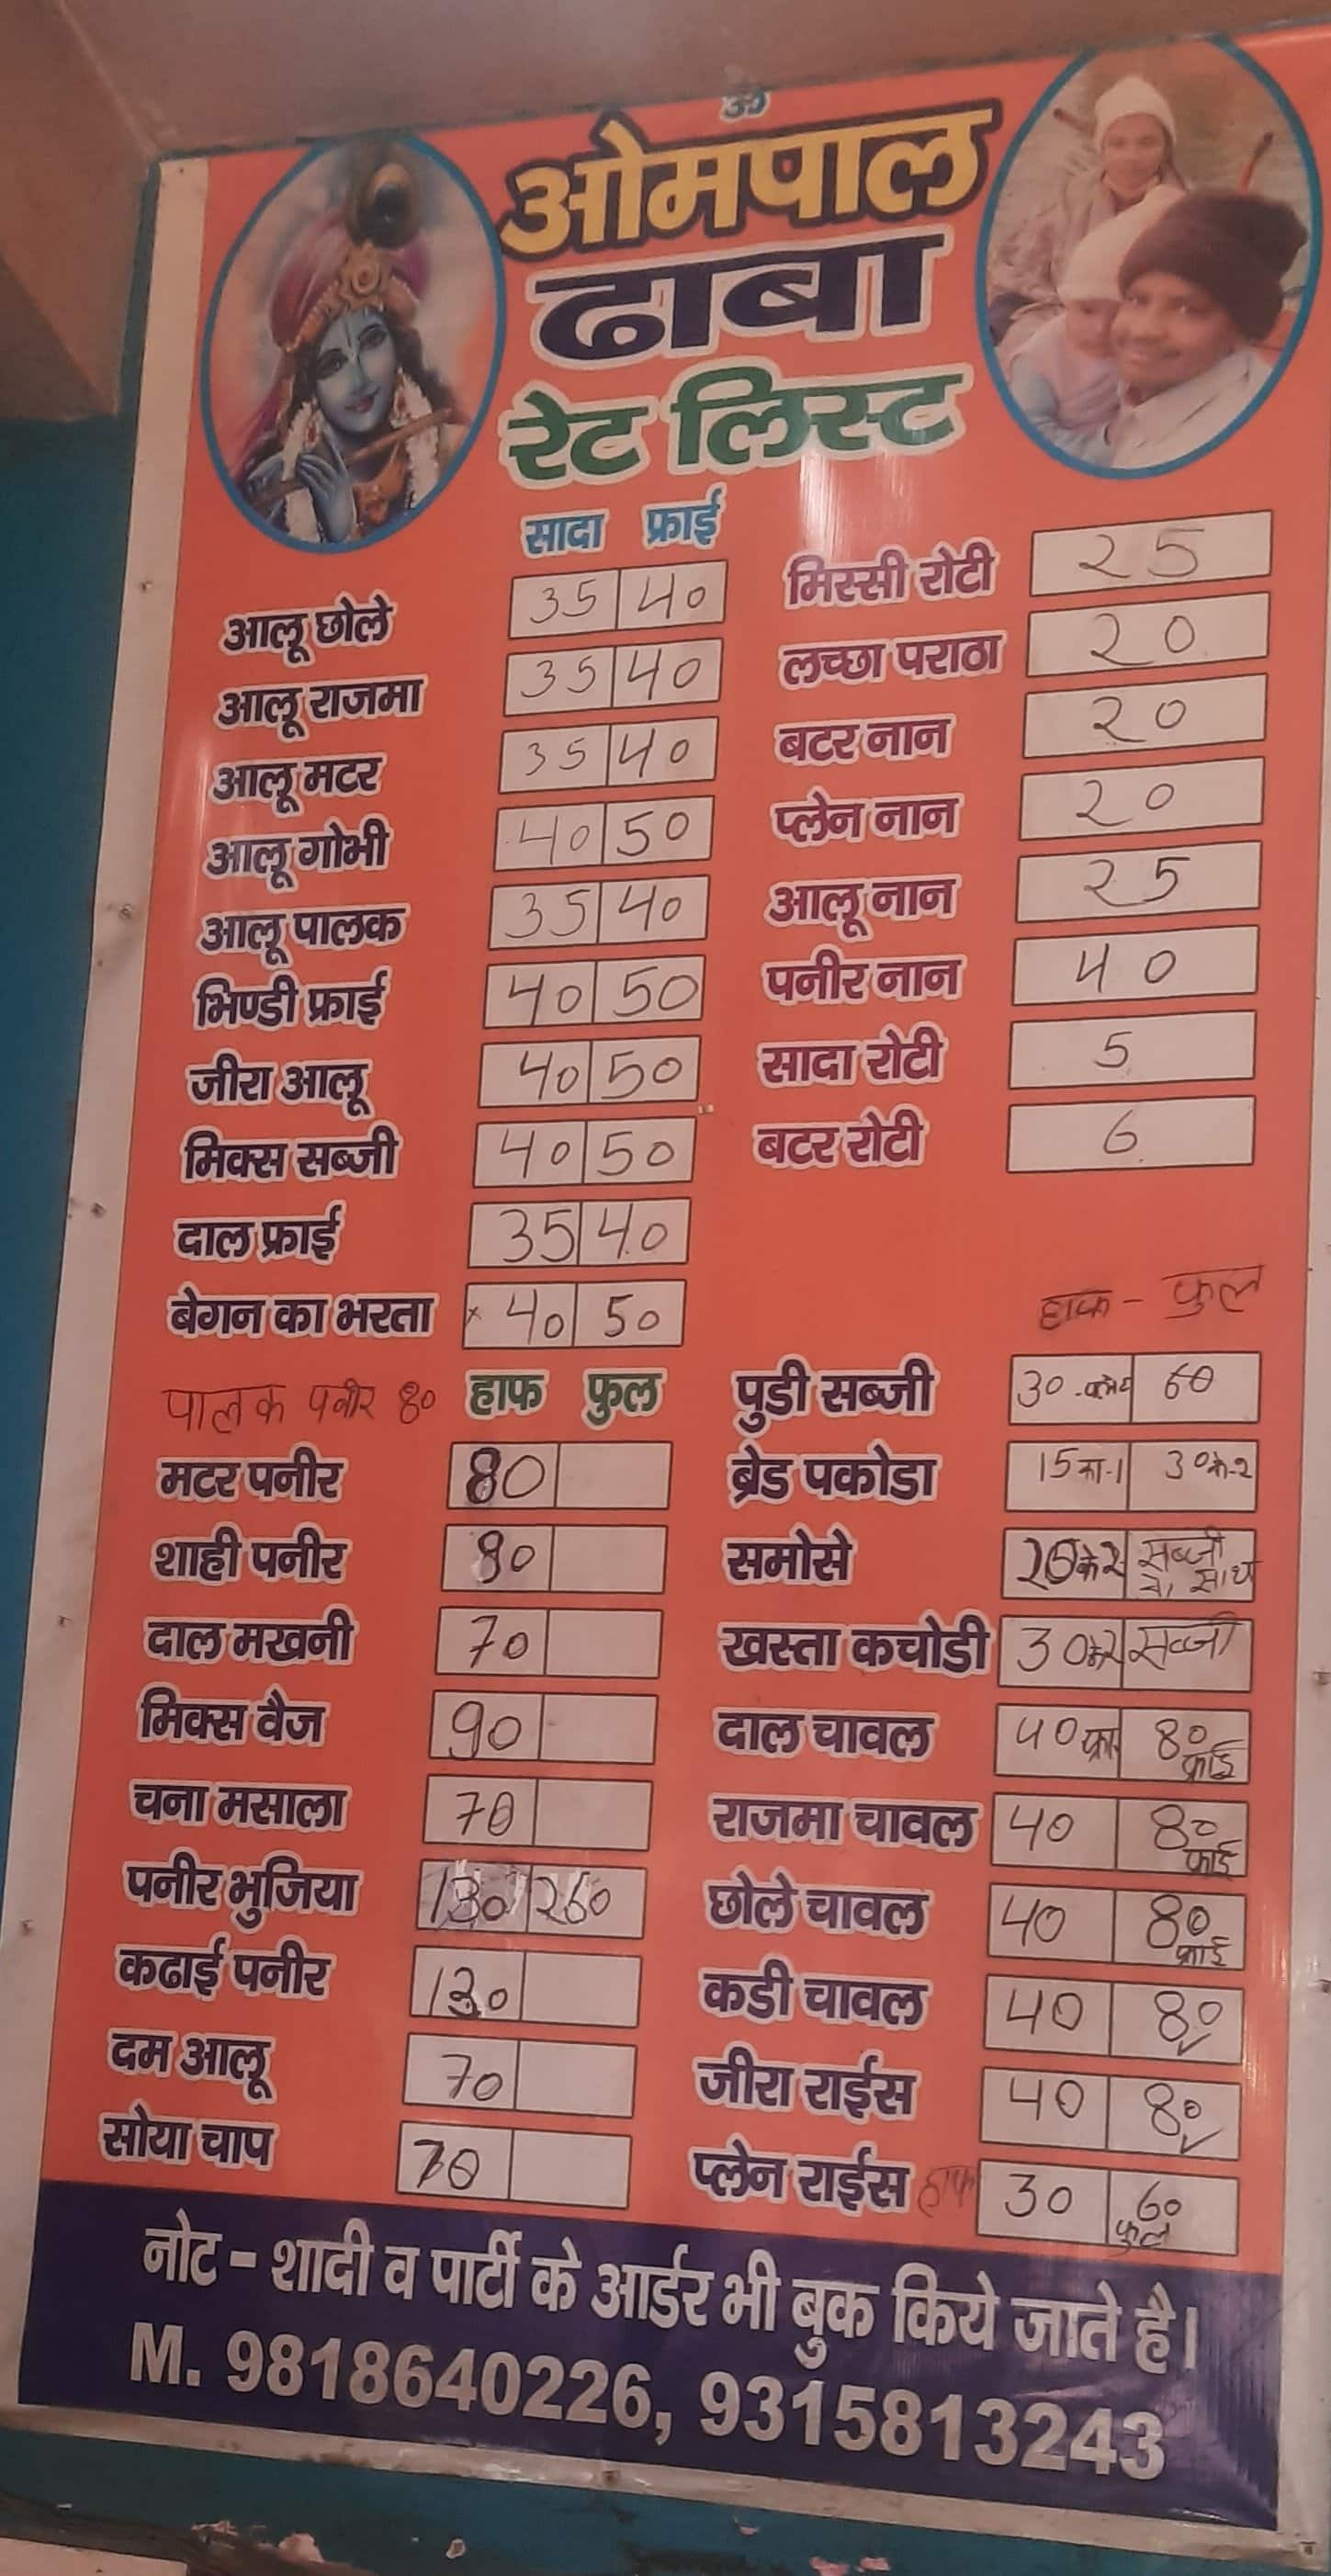 ॐ
ओमपाल
ढाबा
रेट लिस्ट
सादा फ्राई
आलू छोले 35 40
आलू राजमा 35 40
आलू मटर 35 40
आलू गोभी 40 50
आलू पालक 35 40
भिण्डी फ्राई 40 50
जीरा आलू 40 50
मिक्स सब्जी 40 50
दाल फ्राई 35 40
बेगन का भरता 40 50
पालक पनीर 80 हाफ फुल
मटर पनीर 80
शाही पनीर 80
दाल मखनी 70
मिक्स वैज 90
चना मसाला 70
पनीर भुजिया 130 260
कढाई पनीर 130
दम आलू 70
सोया चाप 70
मिस्सी रोटी 25
लच्छा पराठा 20
बटर नान 20
प्लेन नान 20
आलू नान 25
पनीर नान 40
सादा रोटी 5
बटर रोटी 6
हाफ - फुल
पुडी सब्जी 30 60
ब्रेड पकोडा 15 का-1 30 के-2
समोसे के2 सब्जी साथ
खस्ता कचोडी 30 के2 सब्जी
दाल चावल 40 80 फ्राई
राजमा चावल 40 80 फ्राई
छोले चावल 40 80 फ्राई
कडी चावल 40 80
जीरा राईस 40 80
प्लेन राईस हाफ 30 60 फुल
नोट - शादी व पार्टी के आर्डर भी बुक किये जाते है।
M. 9818640226, 9315813243